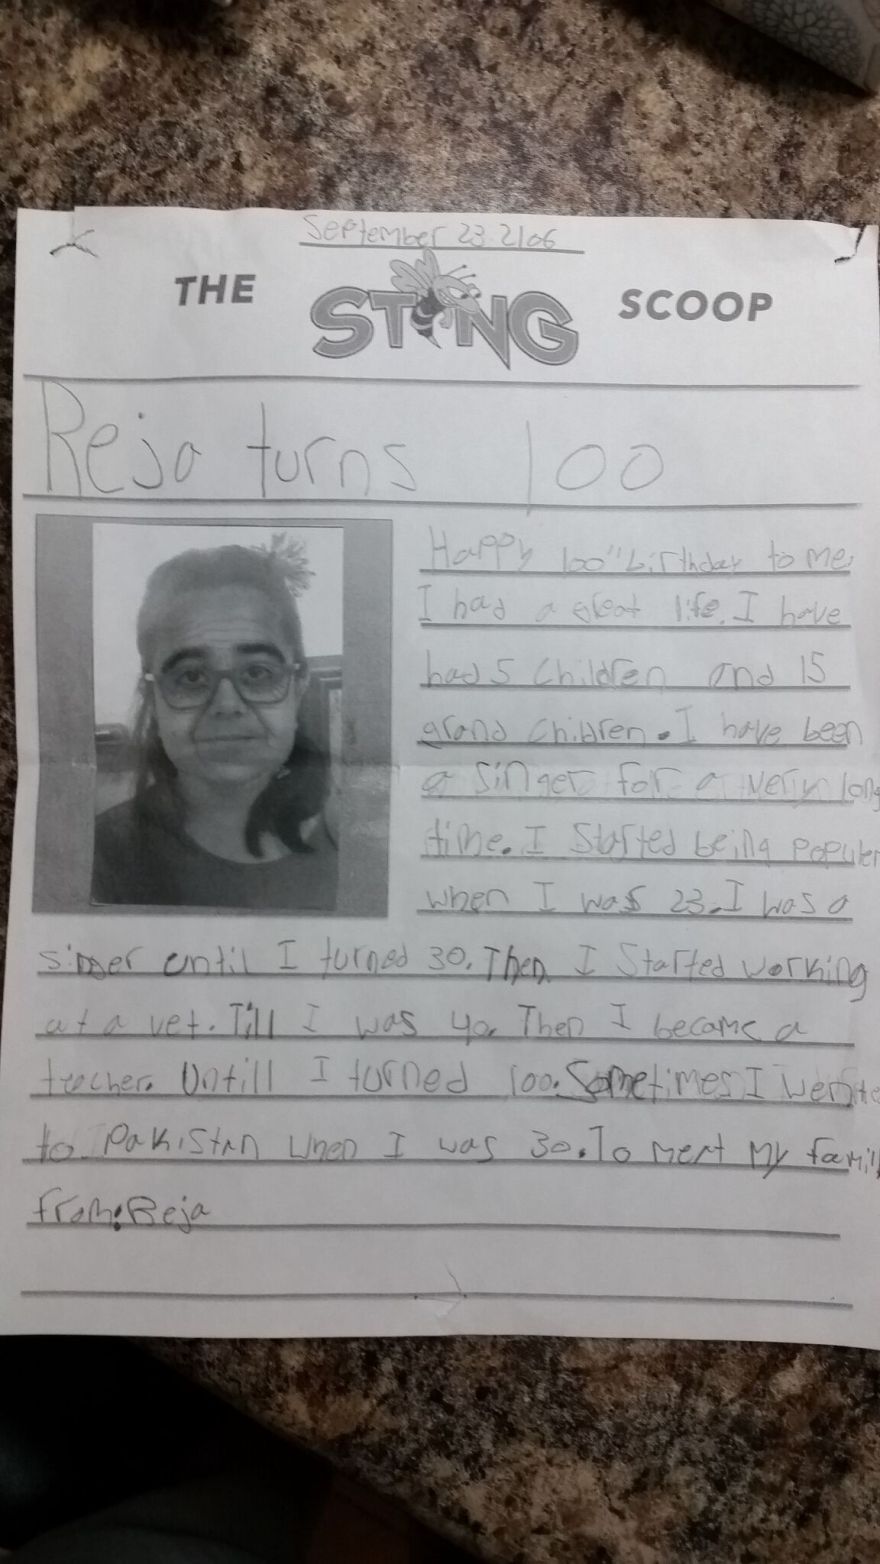 September 23. 2106
THE STING SCOOP
Reja turns 100
Happy 100th birthday to me.
I had a great life. I have
had 5 children and 15
grand children. I have been
a singer for a very long
time. I started being populer
when I was 23. I was a
singer until I turned 30. Then I started working
at a vet. Till I was 40. Then I became a
teacher. Untill I turned 100. Sometimes I
to Pakistan when I was 30. To meet my famil
from: Reja